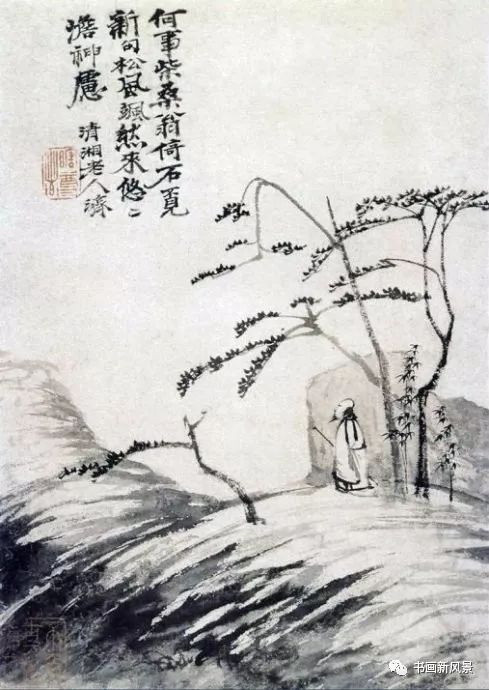 何事柴桑翁倚石覓
新句松風颯然來悠〻
憺神慮
清湘老人濟
书画新风景